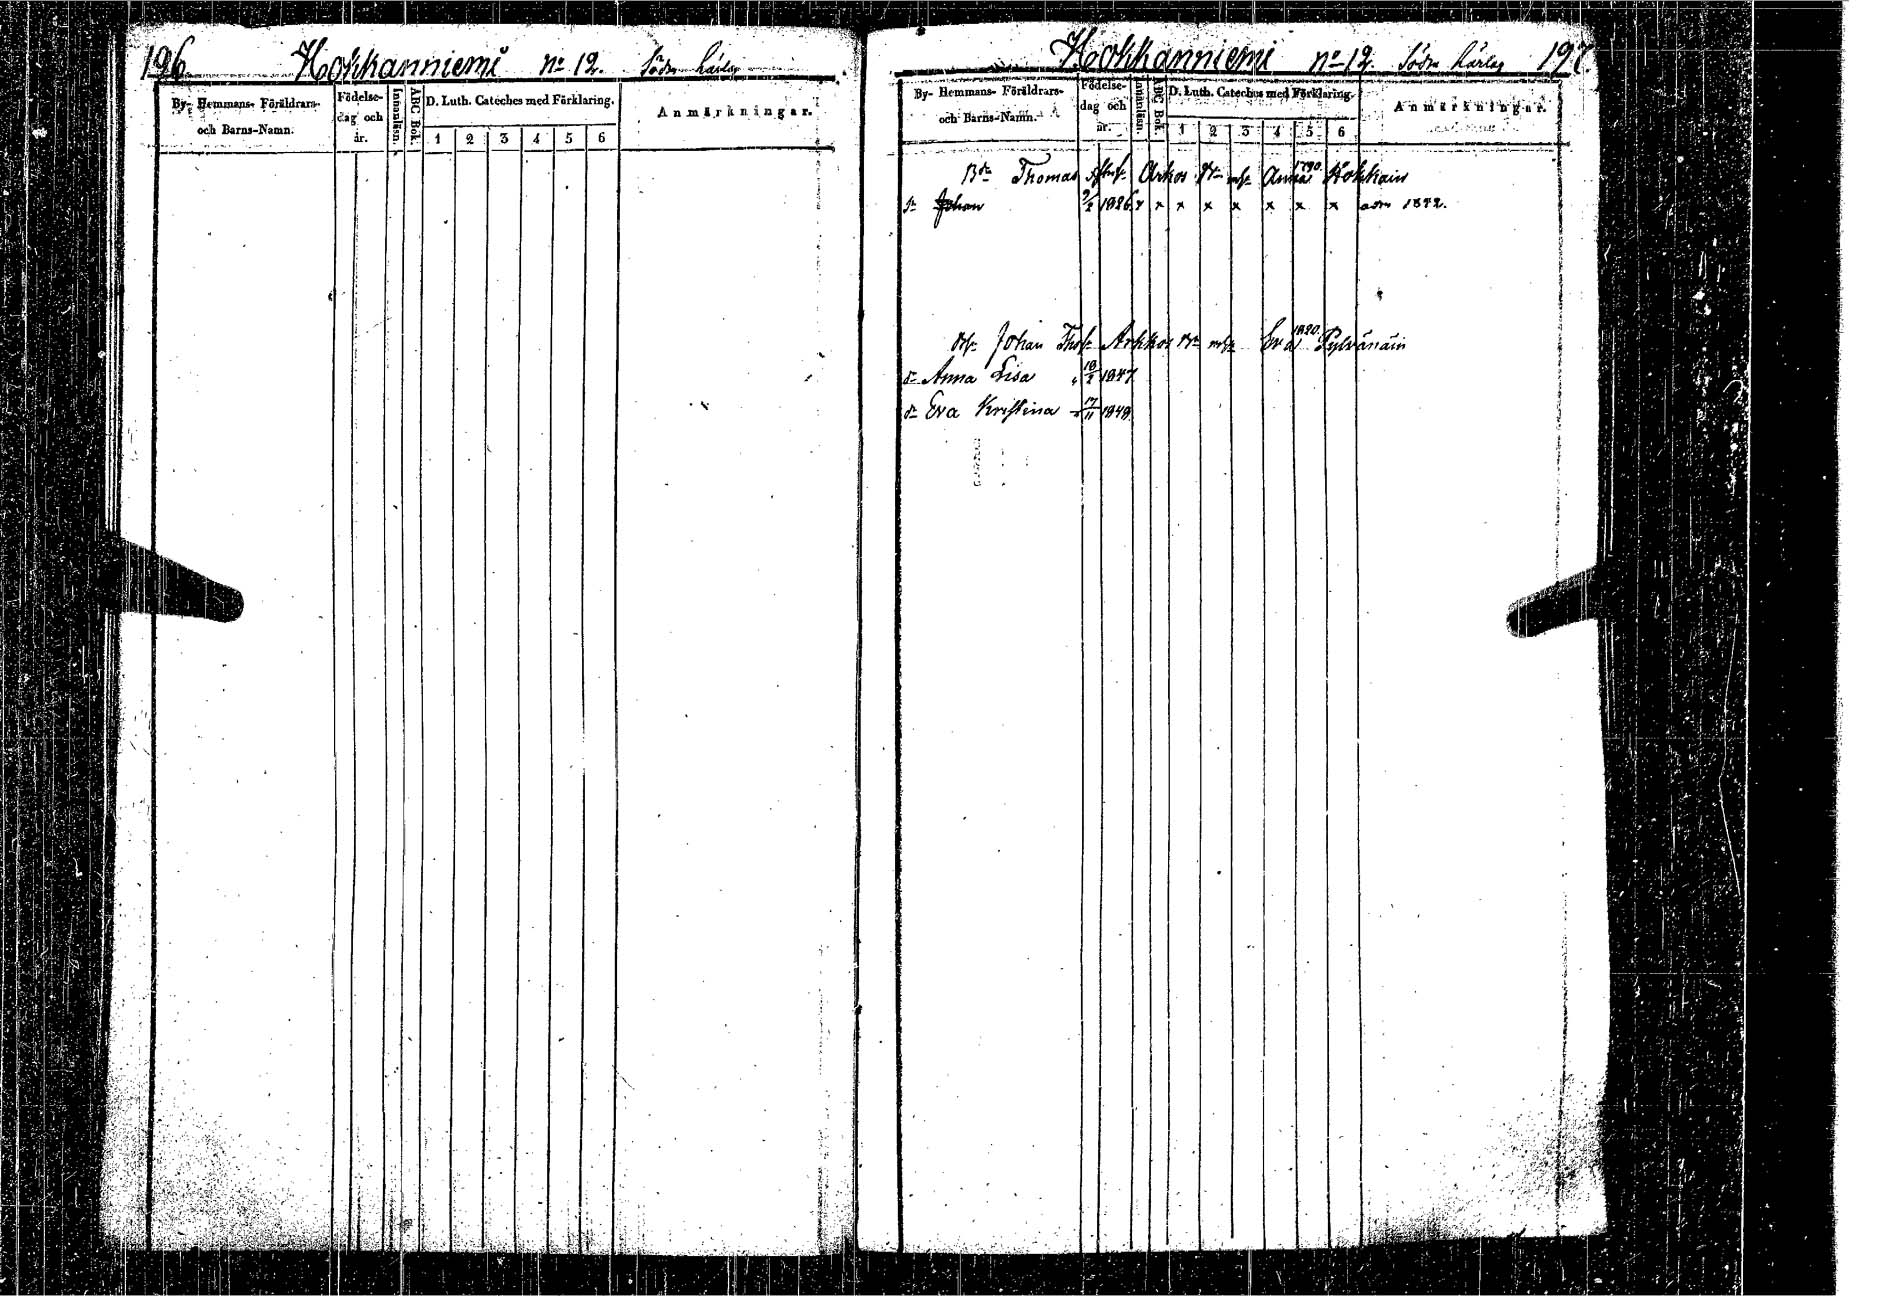 196. Hokkanniemi No 12. Södra härlag
By- Hemmans- Föräldrars-
och Barns-Namn.
Födelse-
dag och
år.
Innanläsn.
ABC Bok.
D. Luth. Cateches med Förklaring.
1 2 3 4 5 6
Anmärkningar.
Hokkanniemi No 12. Södra härlag 197.
By- Hemmans- Föräldrars-
och Barns-Namn.
Födelse-
dag och
år.
Innanläsn.
ABC Bok.
D. Luth. Cateches med Förklaring.
1 2 3 4 5 6
Anmärkningar.
1790.
Bdn Thomas Arkos Anna Kokkain
sn Johan 9/2 1826 x x x x x x x x adm 1842.
1820.
Johan Arkkos Eva Pylvänäin
dr Anna Lisa 1847
dr Eva Kristina 17/11 1849